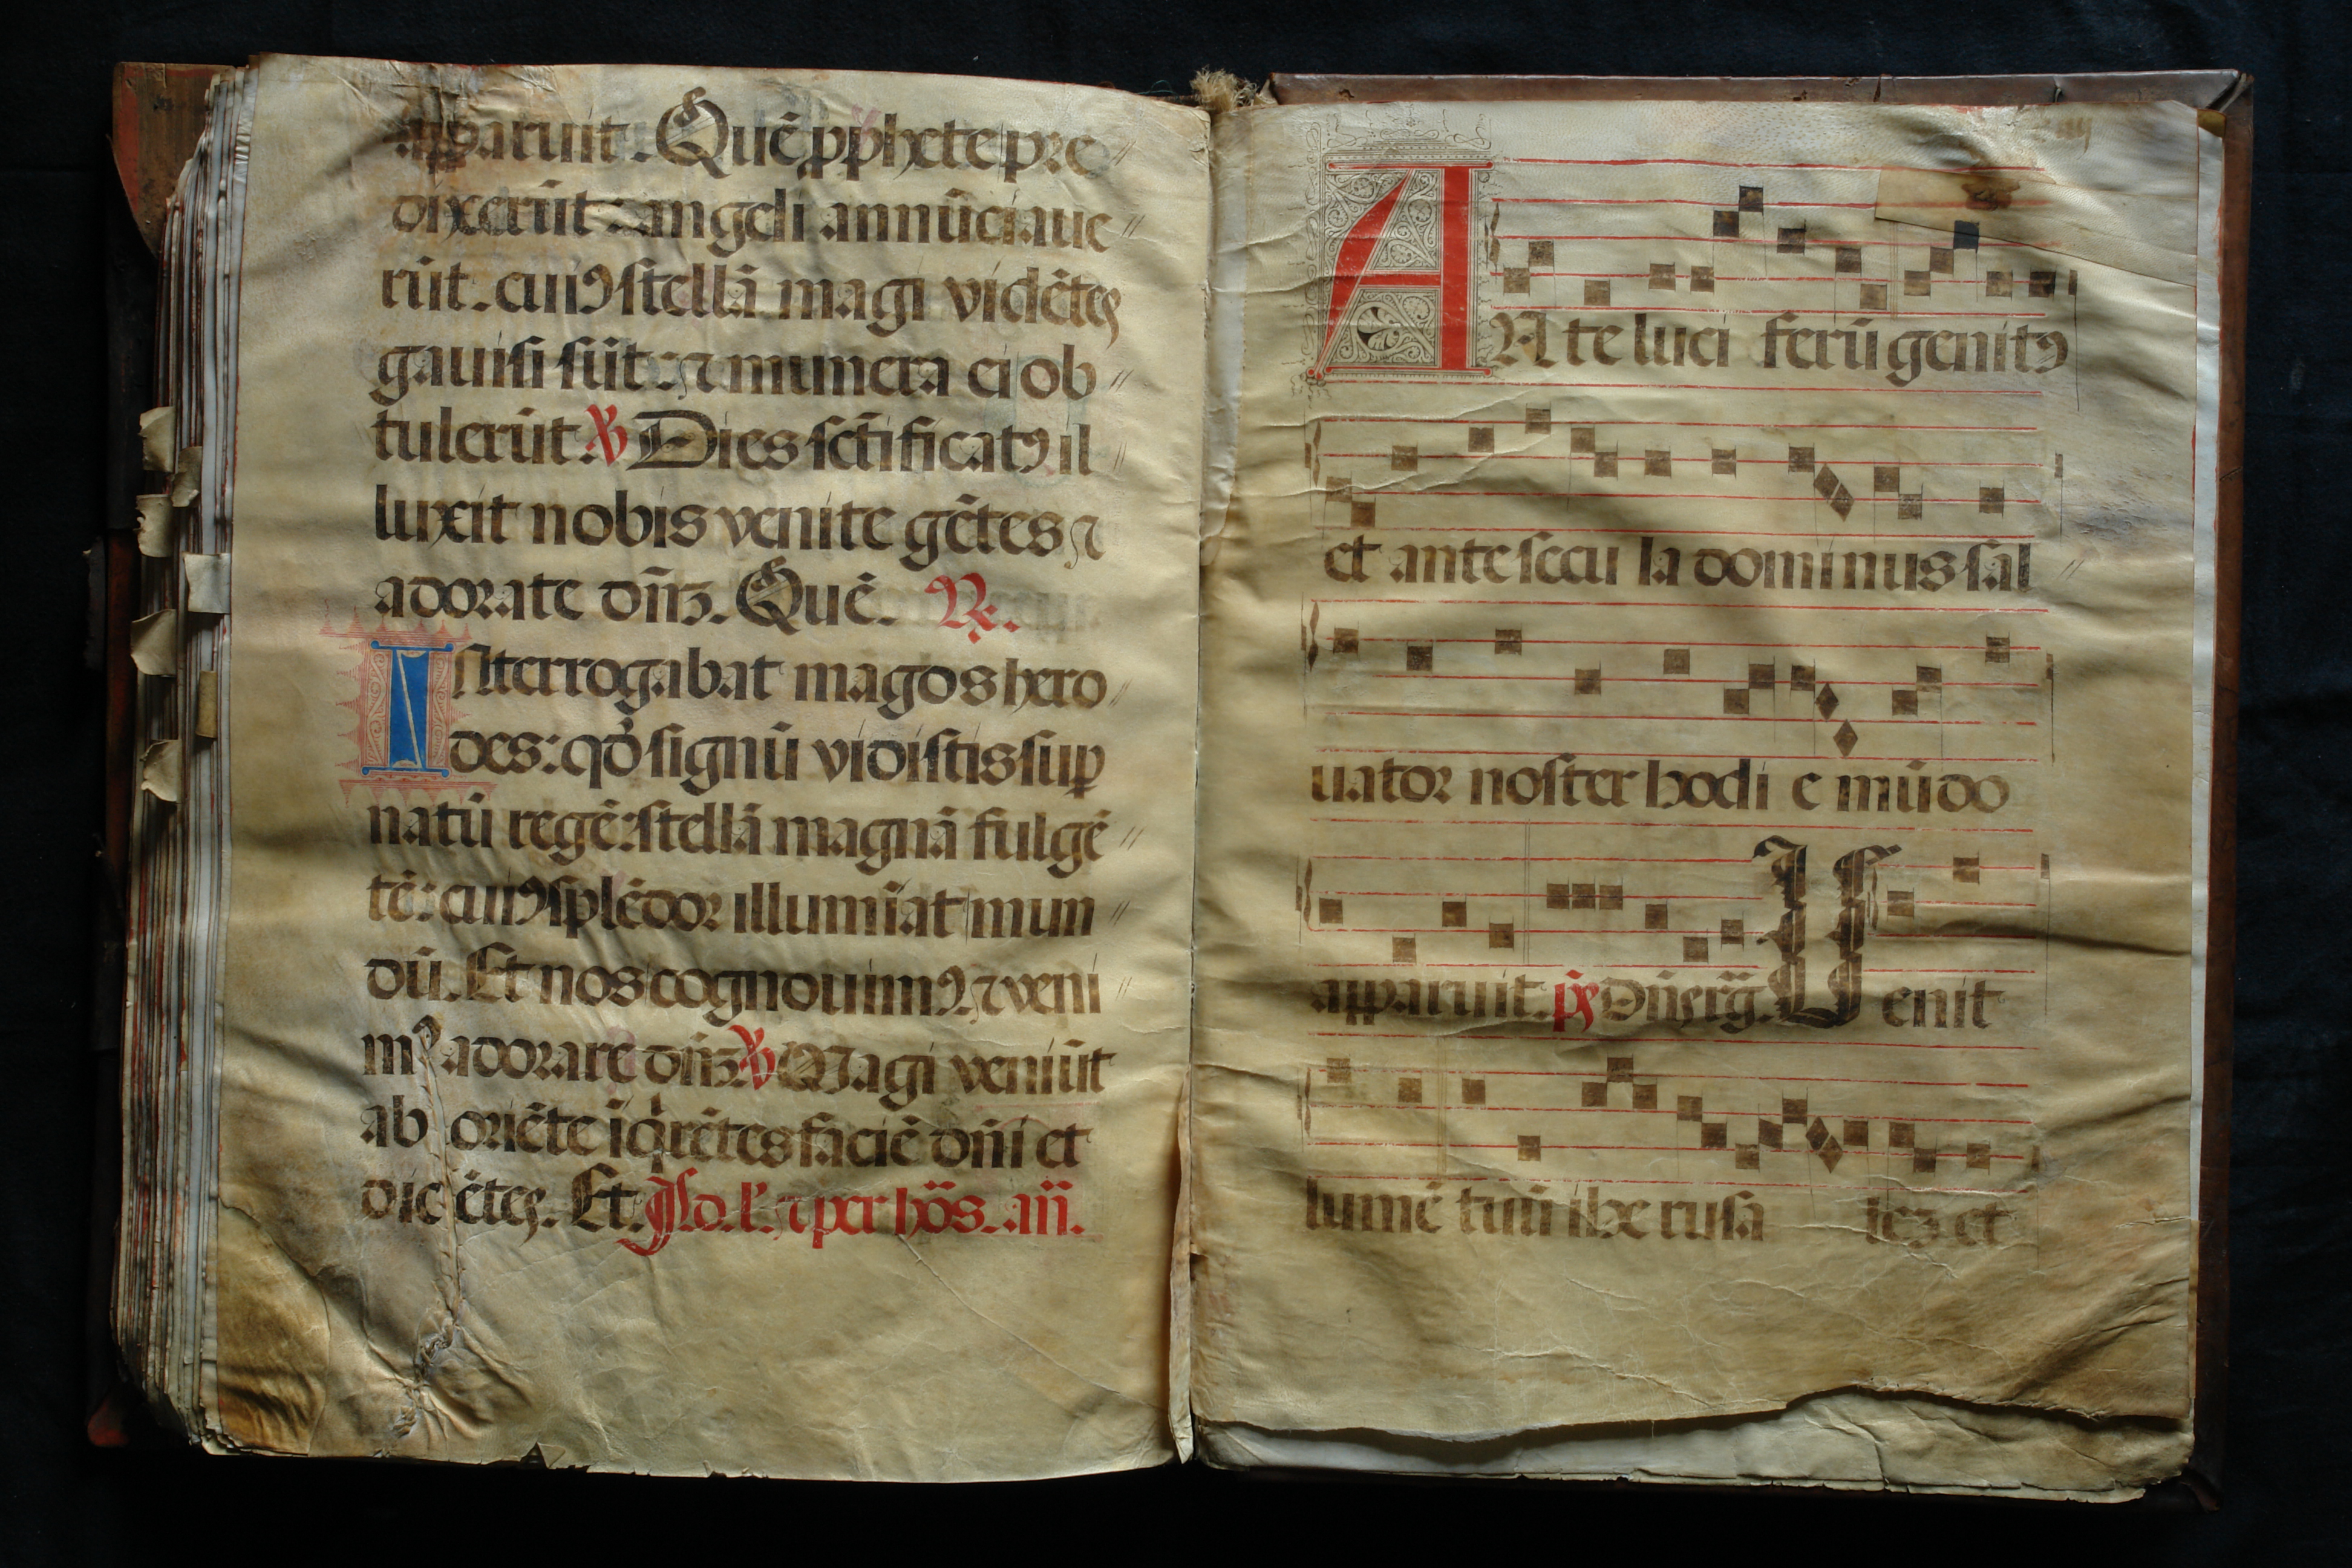 apparuit. Quē pphete pre
dixerūt ⁊ angeli annūciaue
rūt. cuiꝰ stellā magi vidētes
gauisi sūt: ⁊ munera ei ob
tulerūt. ℣ Dies sctīficatꝰ il
luxit nobis venite gētes ⁊
adorate dn̄ȝ. Quē. ℞.
Interrogabat magos hero
des: qđ signū vidistis suꝑ
natū regē: stellā magnā fulgē
tē: cuiꝰ splēdor illumīat mun
dū. Et nos cognouimꝰ ⁊ veni
mꝰ adorare dn̄ȝ ℣ Magi veniūt
ab oriēte īqrētes faciē dn̄i et
dicētes. Et. Ad. l'. ⁊ per hōs. an̄.
ANte luci ferū genitꝰ
et ante secu la dominus sal
uator noster hodi e mūdo
apparuit. ps Dn̄s rḡ. Uenit
lumē tuū ihe rusa lez et